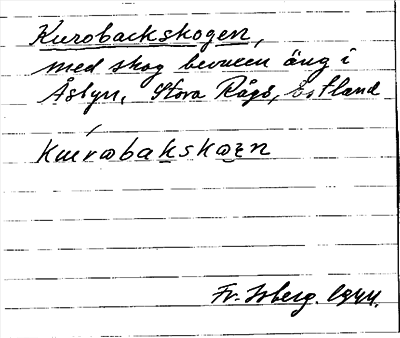 Kurobackskogen,
med skog bevuxen äng i
Åsbyn, Stora Rågö, Estland
Kurobakskogen
Fr. Isberg. 1944.